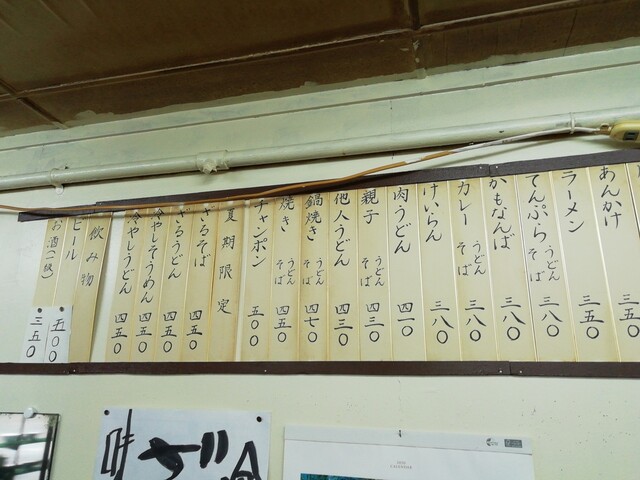 あんかけ 三五〇
ラーメン 三五〇
てんぷら うどん そば 三八〇
かもなんば 三八〇
カレー うどん そば 三八〇
けいらん 三八〇
肉うどん 四一〇
親子 うどん そば 四三〇
他人うどん 四三〇
鍋焼き うどん そば 四七〇
焼き うどん そば 四五〇
チャンポン 五〇〇
夏期限定
ざるそば 四五〇
ざるうどん 四五〇
冷やしそうめん 四五〇
冷やしうどん 四五〇
飲み物
ビール 五〇〇
お酒(一級) 三五〇
CALENDAR